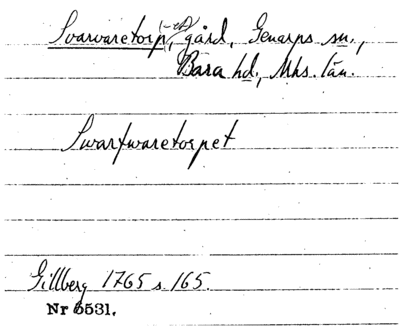 Svarvaretorp (-et), gård, Genarps sn.,
Bara hd., Mhs. län.
Swarfwaretorpet
Gillberg 1765 s. 165.
Nr 5531.